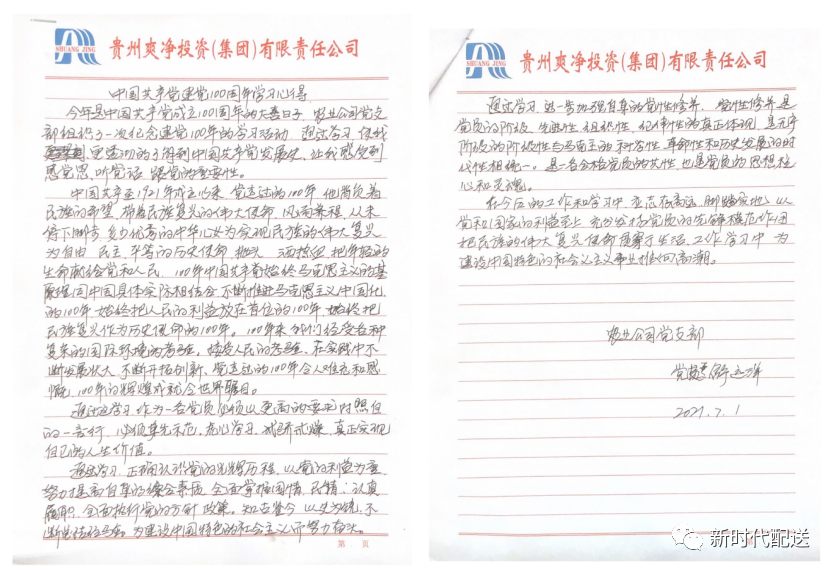 SHUANG JING
贵州爽净投资(集团)有限责任公司
中国共产党建党100周年学习心得
今年是中国共产党成立100周年的大喜日子,农业公司党支
部组织了一次纪念建党100年的学习活动,通过学习,使我
更深刻的了解到中国共产党发展史,让我感受到
感党恩、听党话、跟党的重要性。
中国共产党1921年成立以来,党走过的100年,他肩负着
民族的希望,带着民族复兴的伟大使命,风雨兼程,从未
停下脚步,多少优秀的中华儿女为实现民族的伟大复兴
为自由、民主、平等的历史使命,抛头 洒热血,把年轻的
生命献给党和人民。100年中国共产党始终马克思主义的基
原理同中国具体实际相结合,不断推进马克思主义中国化
的100年,始终把人民的利益放在首位的100年,始终把
民族复兴作为历史使命的100年。100年来他们经受各种
复杂的国际环境的考验,接受人民的考验,在实践中不
断发展壮大,不断开拓创新,党走过的100年令人难忘和感
慨,100年的辉煌成就令世界瞩目。
通过这学习,作为一名党员必须以更高的要求对照自
的一言行,必须率先示范,虚心学习,戒骄戒燥,真正实现
自己的人生价值。
通过学习,正确认识党的光辉历程,以党的利益为重
努力提高自身的综合素质,全面掌握国情、民情、认真
履职,全面执行党的方针政策。知古鉴今,以史为镜,不
断总结经验,为建设中国特色的社会主义而努力奋斗。
第 页
SHUANG JING
贵州爽净投资(集团)有限责任公司
通过学习,进一步加强自身的党性修养,党性修养是
党员的阶级、先进性、组织性、纪律性的真正体现,是无产
阶级的阶级性与马克主的科学性、革命性和历史发展的时
代性相统一。是一名合格党员的共性,也是党员的思想核
心和灵魂。
在今后的工作和学习中,志存高远,脚踏实地,以
党和国家的利益至上,充分发挥党员的先锋模范作用
把民族的伟大复兴使命贯穿于生活、工作、学习中,为
建设中国特色的社会主义事业推向高潮。
农业公司党支部
2021.7.1
新时代配送